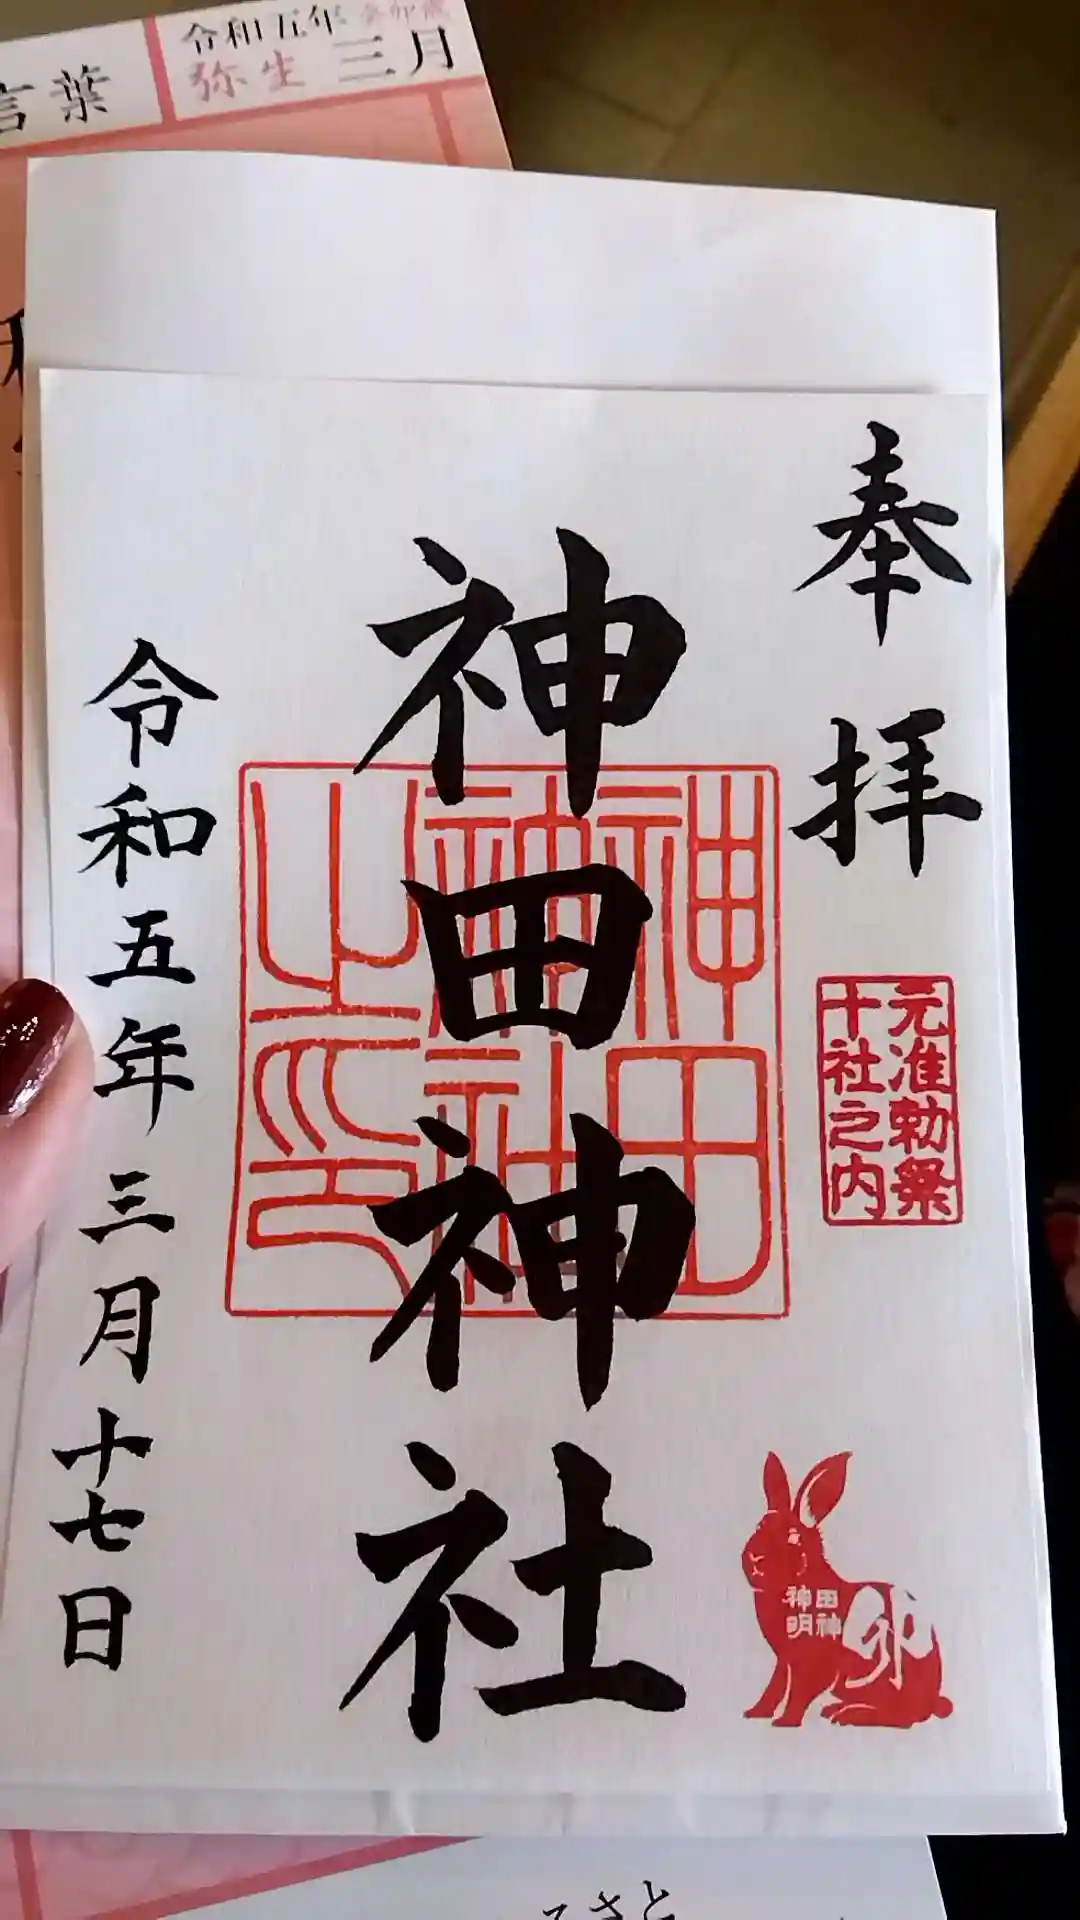 言葉
令和五年 癸卯歳
弥生 三月
奉拝
元准勅祭
十社之内
神田神社
神田
神社
之印
令和五年三月十七日
神田
明神
卯
さと